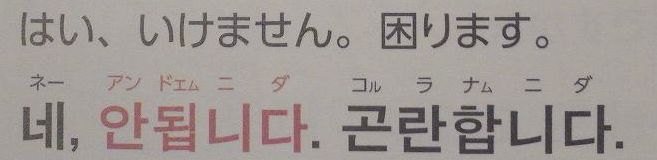 はい、いけません。困ります。
ネー アン ドェム ニ ダ コル ラ ナム ニ ダ
네, 안됩니다. 곤란합니다.